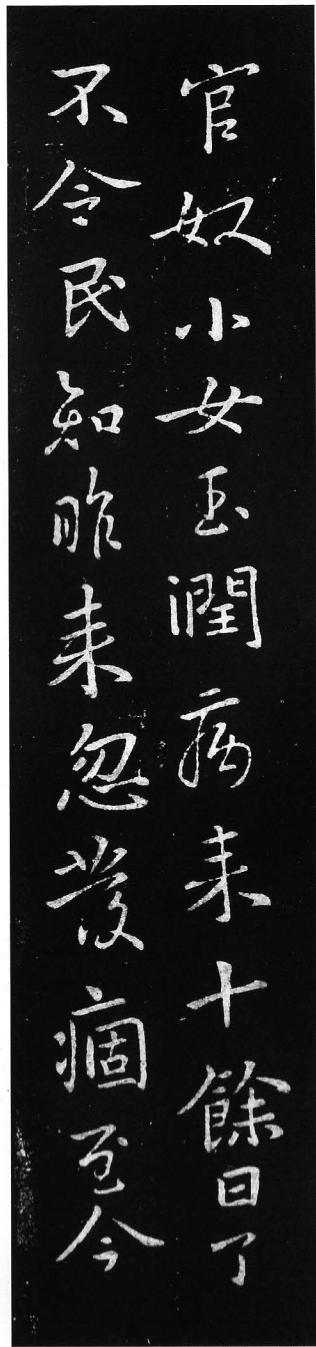 官奴小女玉潤病来十餘日了
不令民知昨来忽發痼至今